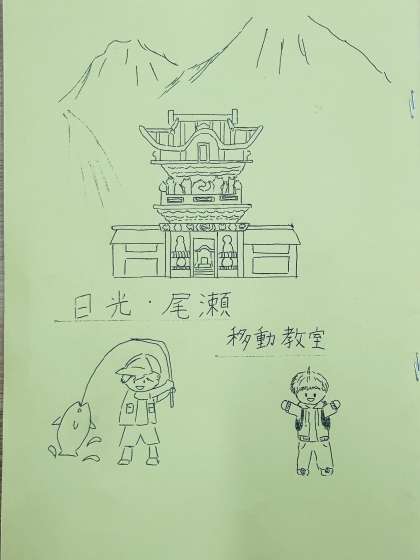 日光・尾瀬
移動教室